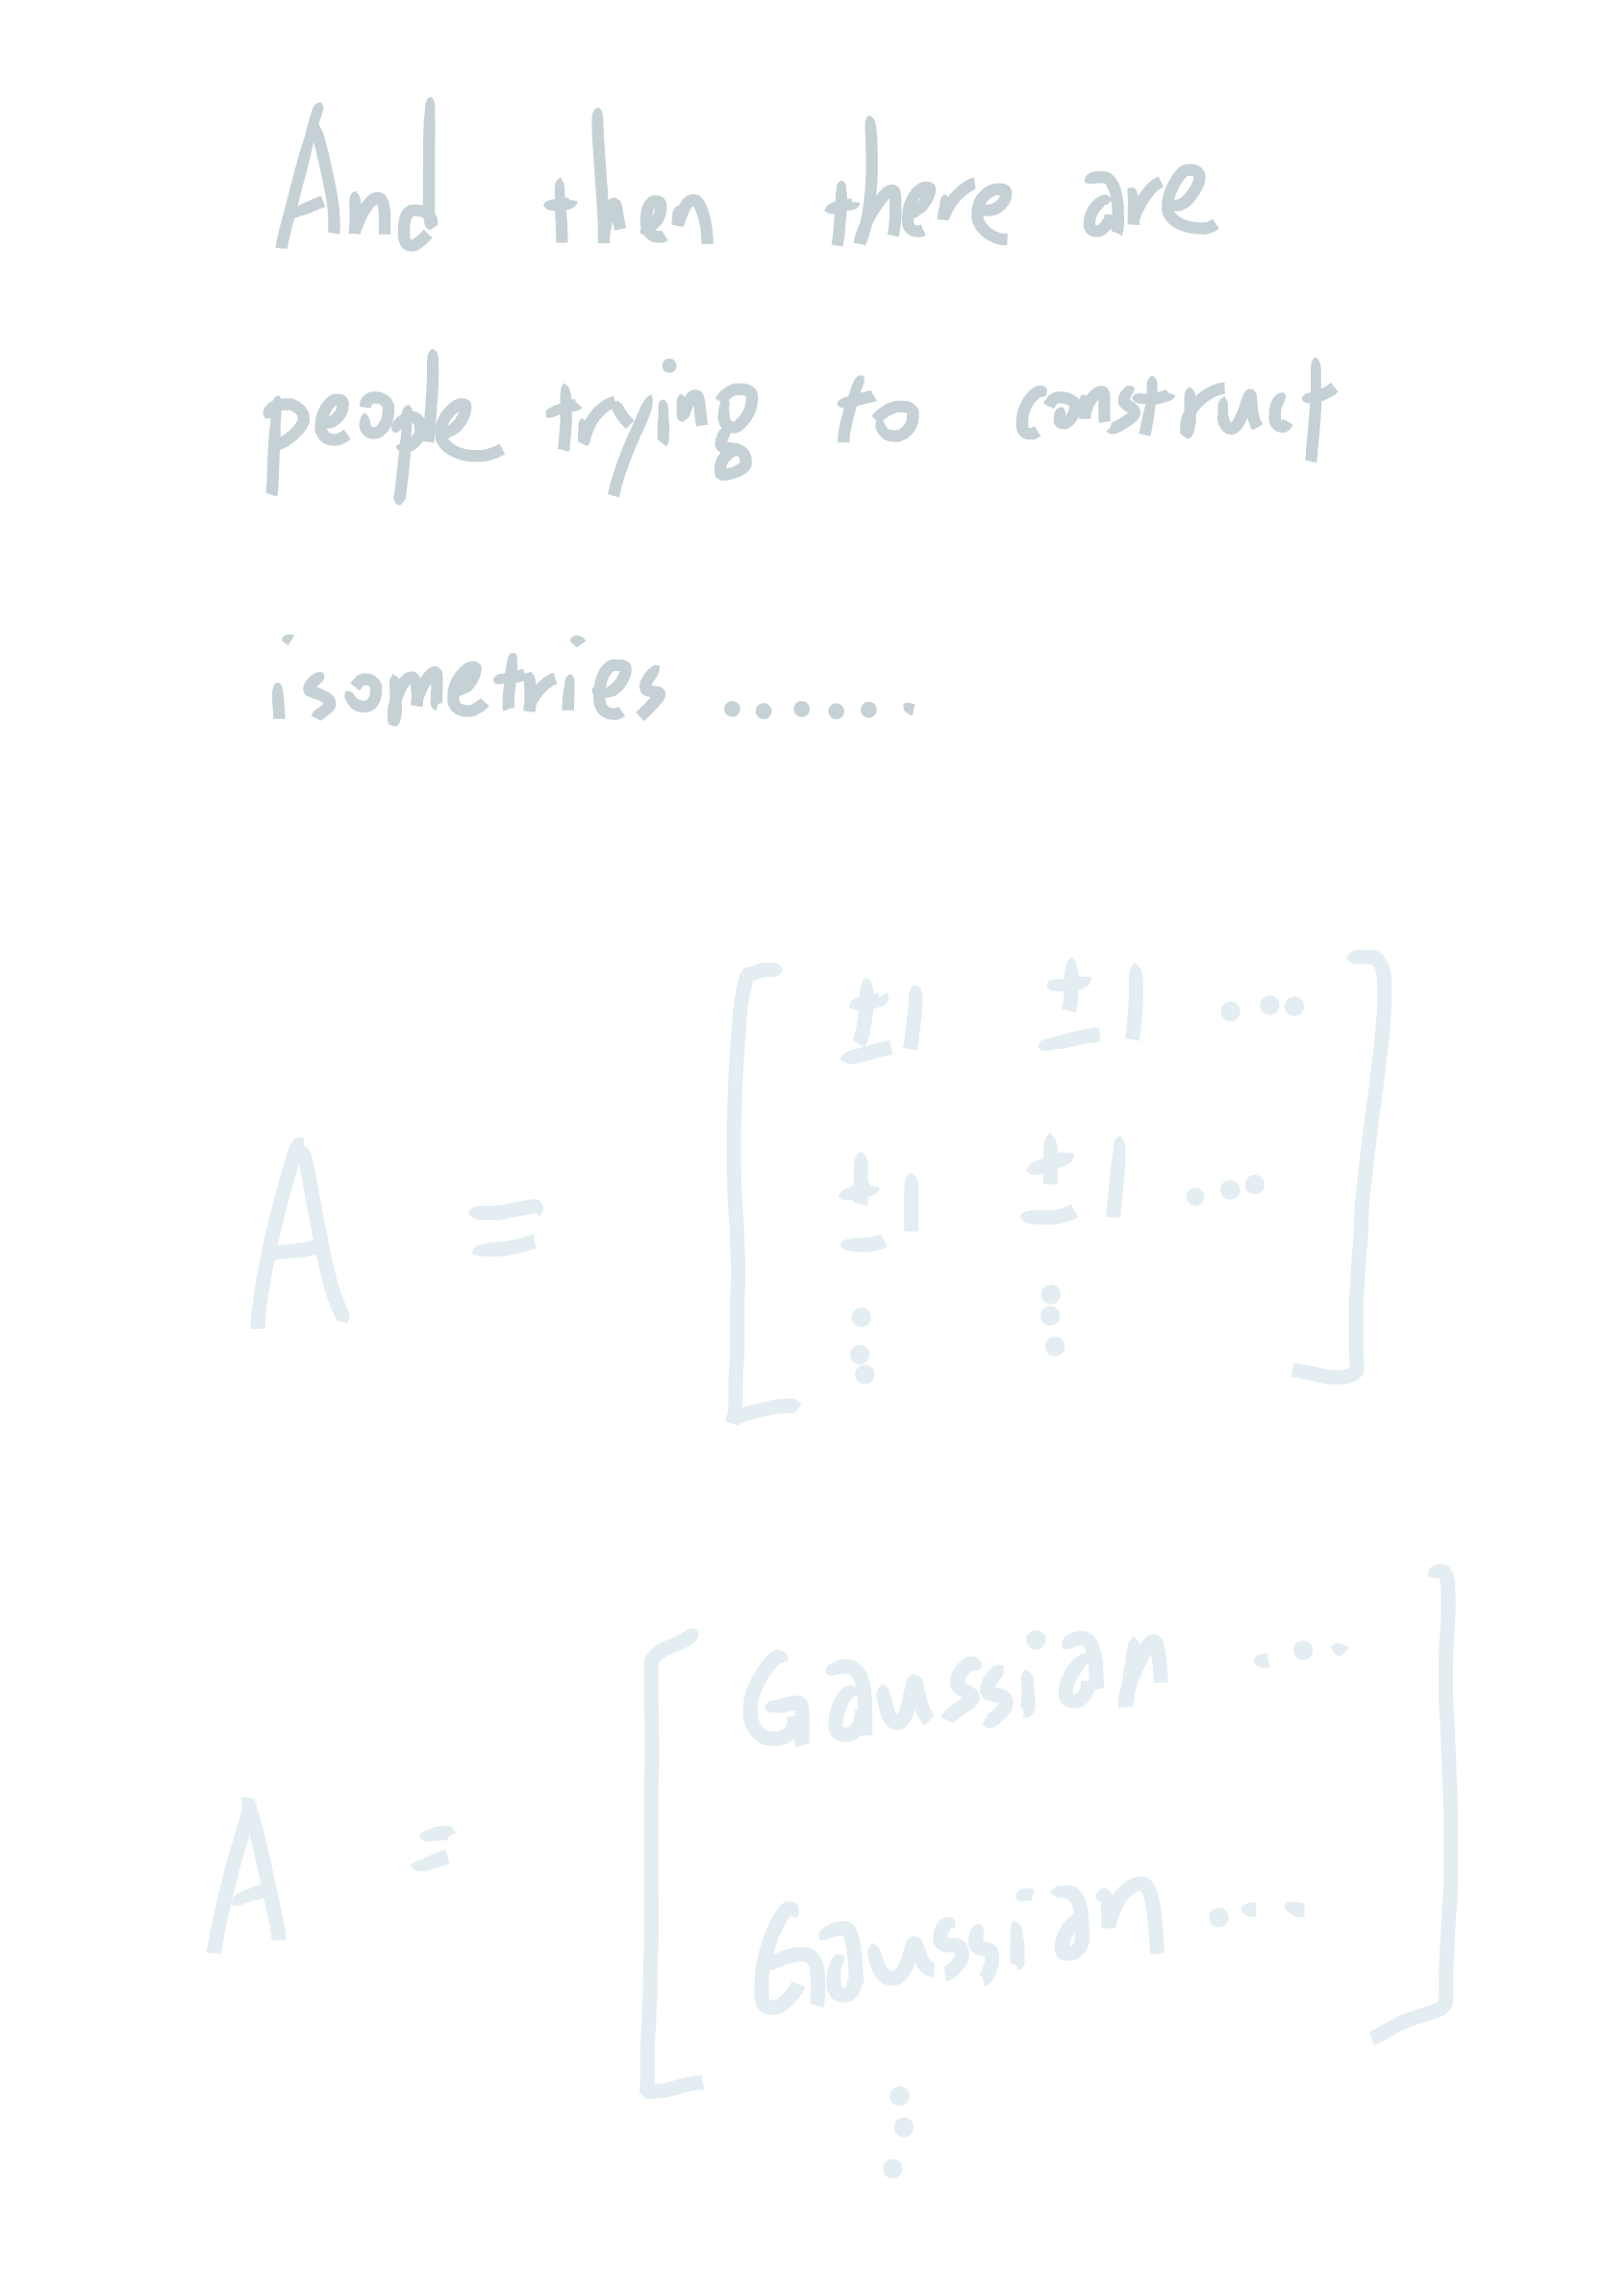 And then there are
people trying to constract
isometries .......
±1 ±1 ...
A =
±1 ±1 ...
⋮ ⋮
Gaussian ...
A =
Gaussian ...
⋮